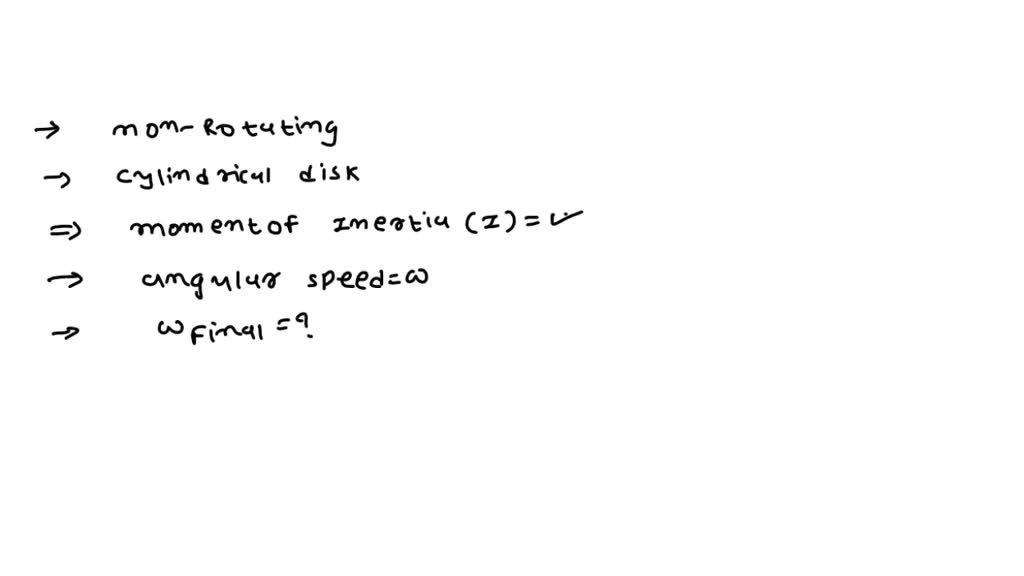 → non-Rotating
→ cylindrical disk
⇒ moment of Inertia (I) = ✓
→ angular speed = ω
→ ω Final = ?